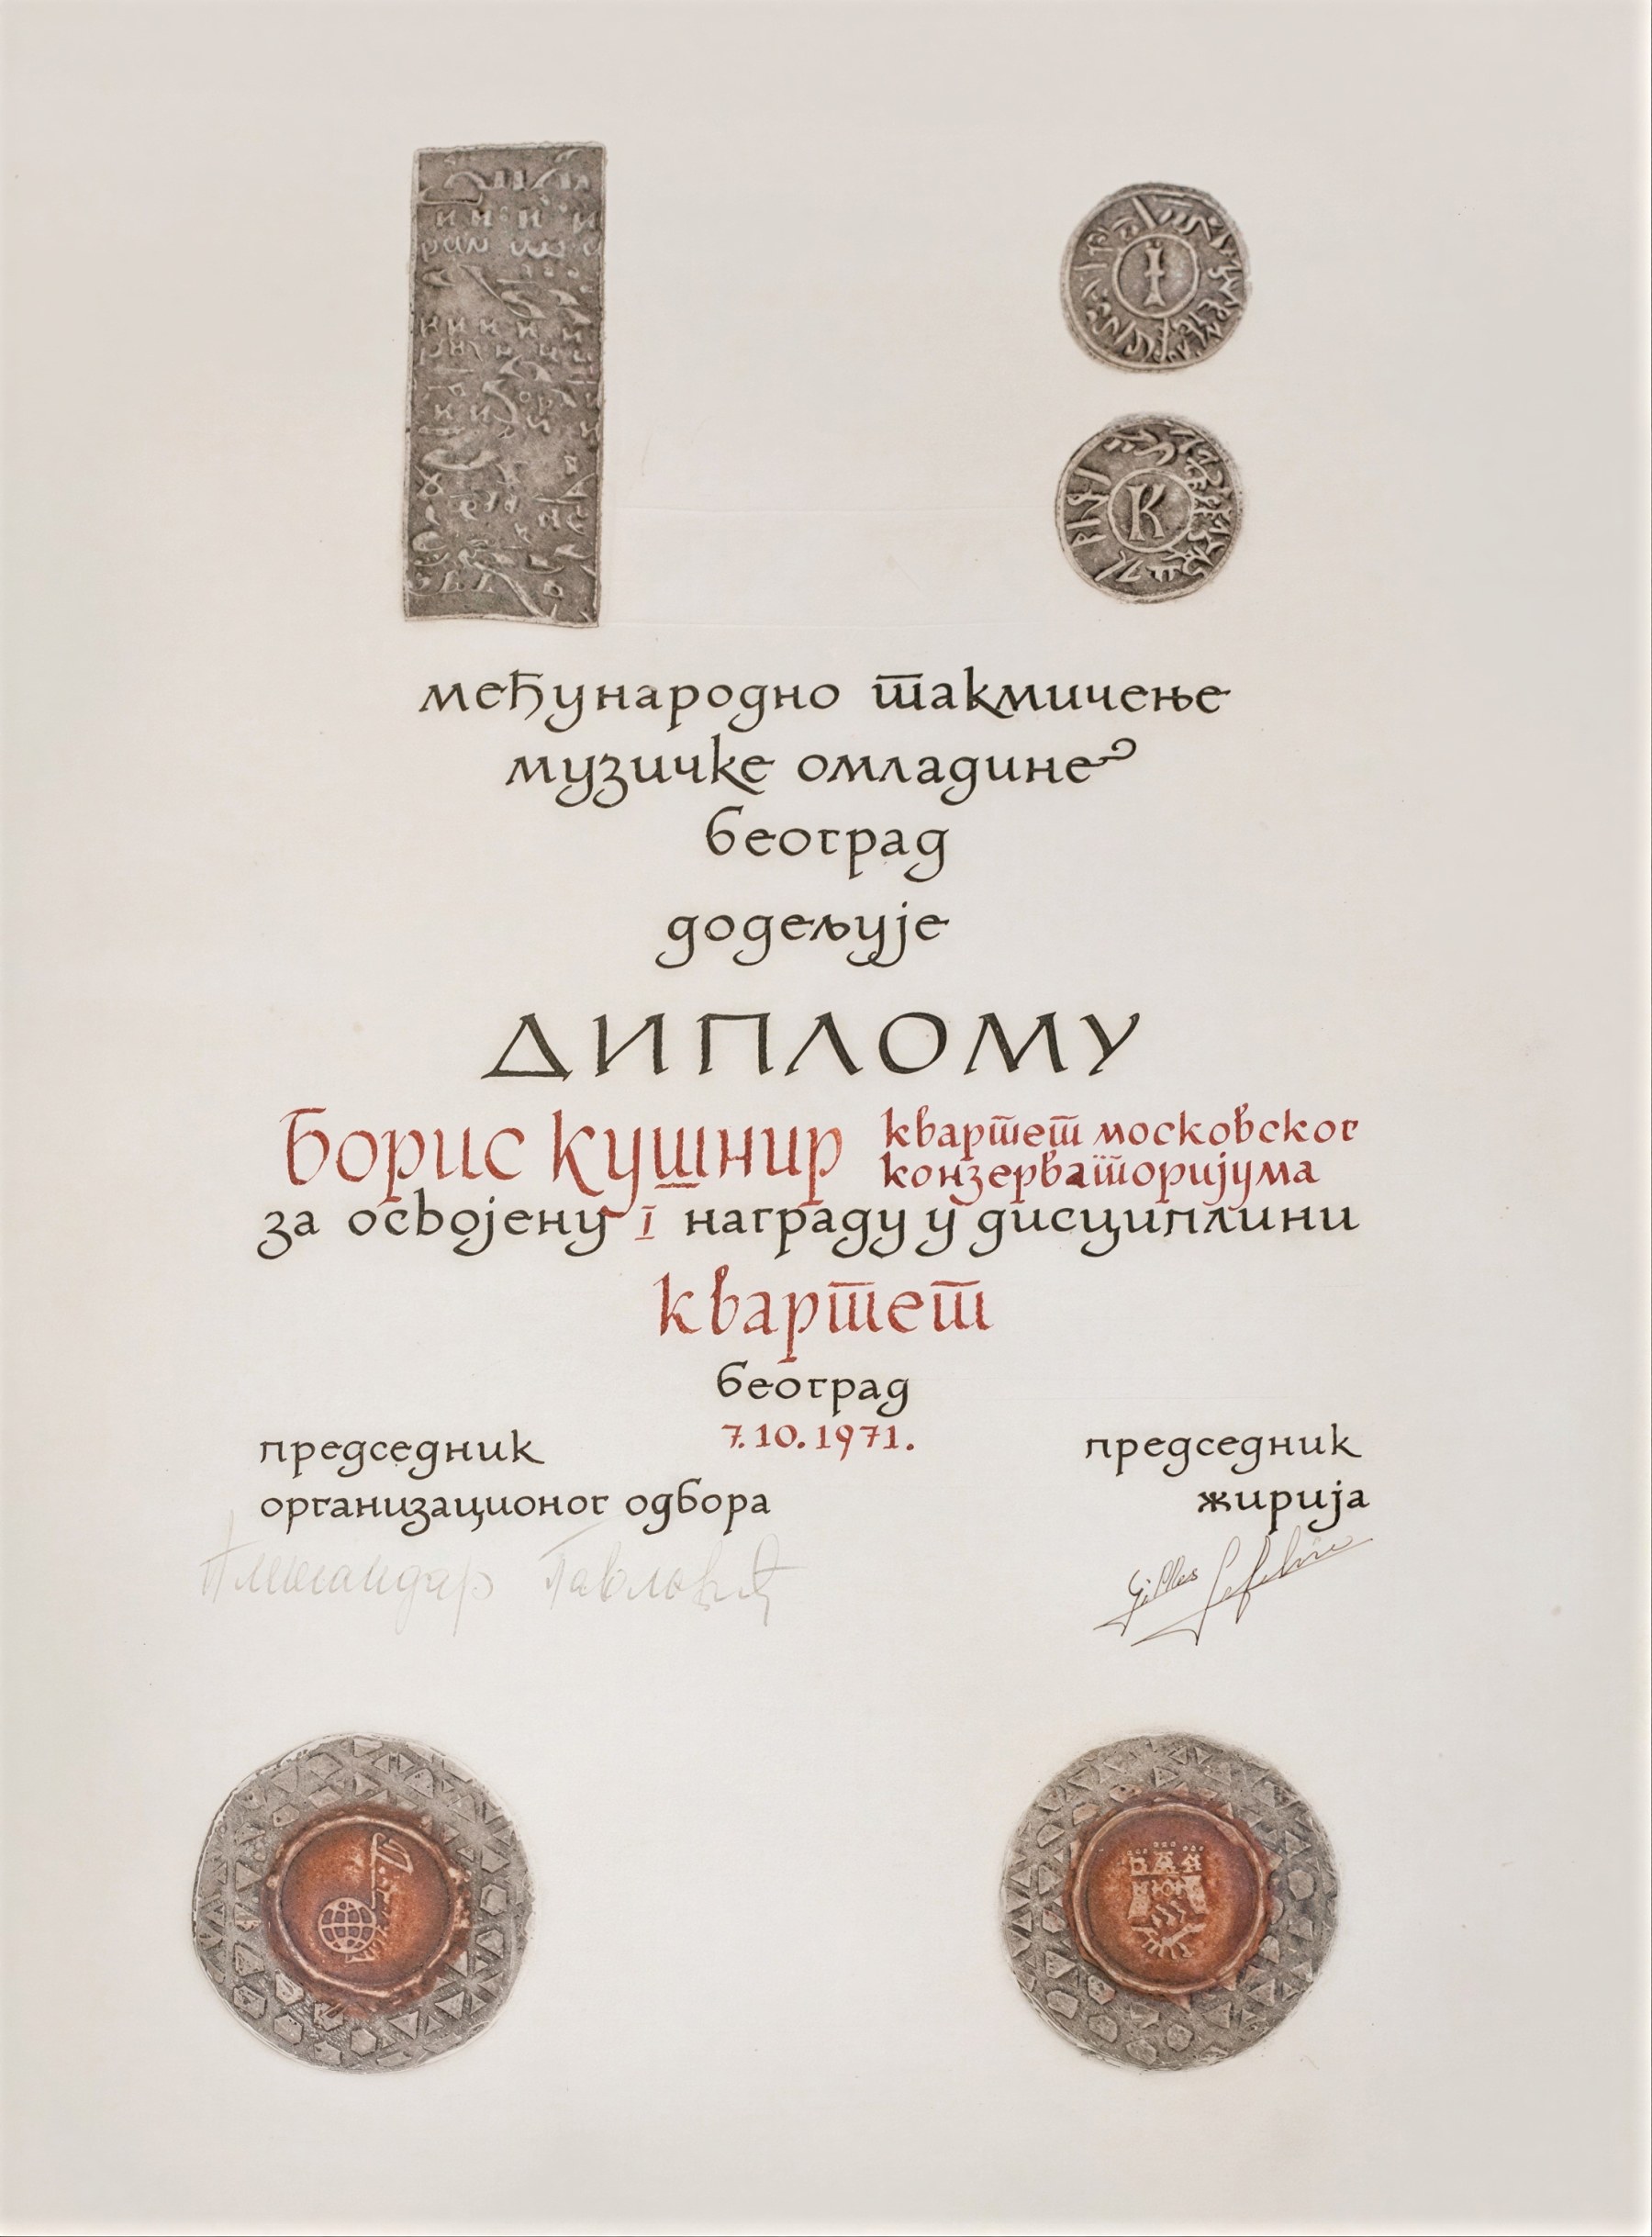 међународно такмичење
музичке омладине
београд
додељује
ДИПЛОМУ
Борис Кушнир квартет московског
конзерваторијума
за освојену I награду у дисциплини
квартет
београд
7.10.1971.
председник
организационог одбора
председник
жирија
Александар Павловић
Gilles Lefebvre
I
K